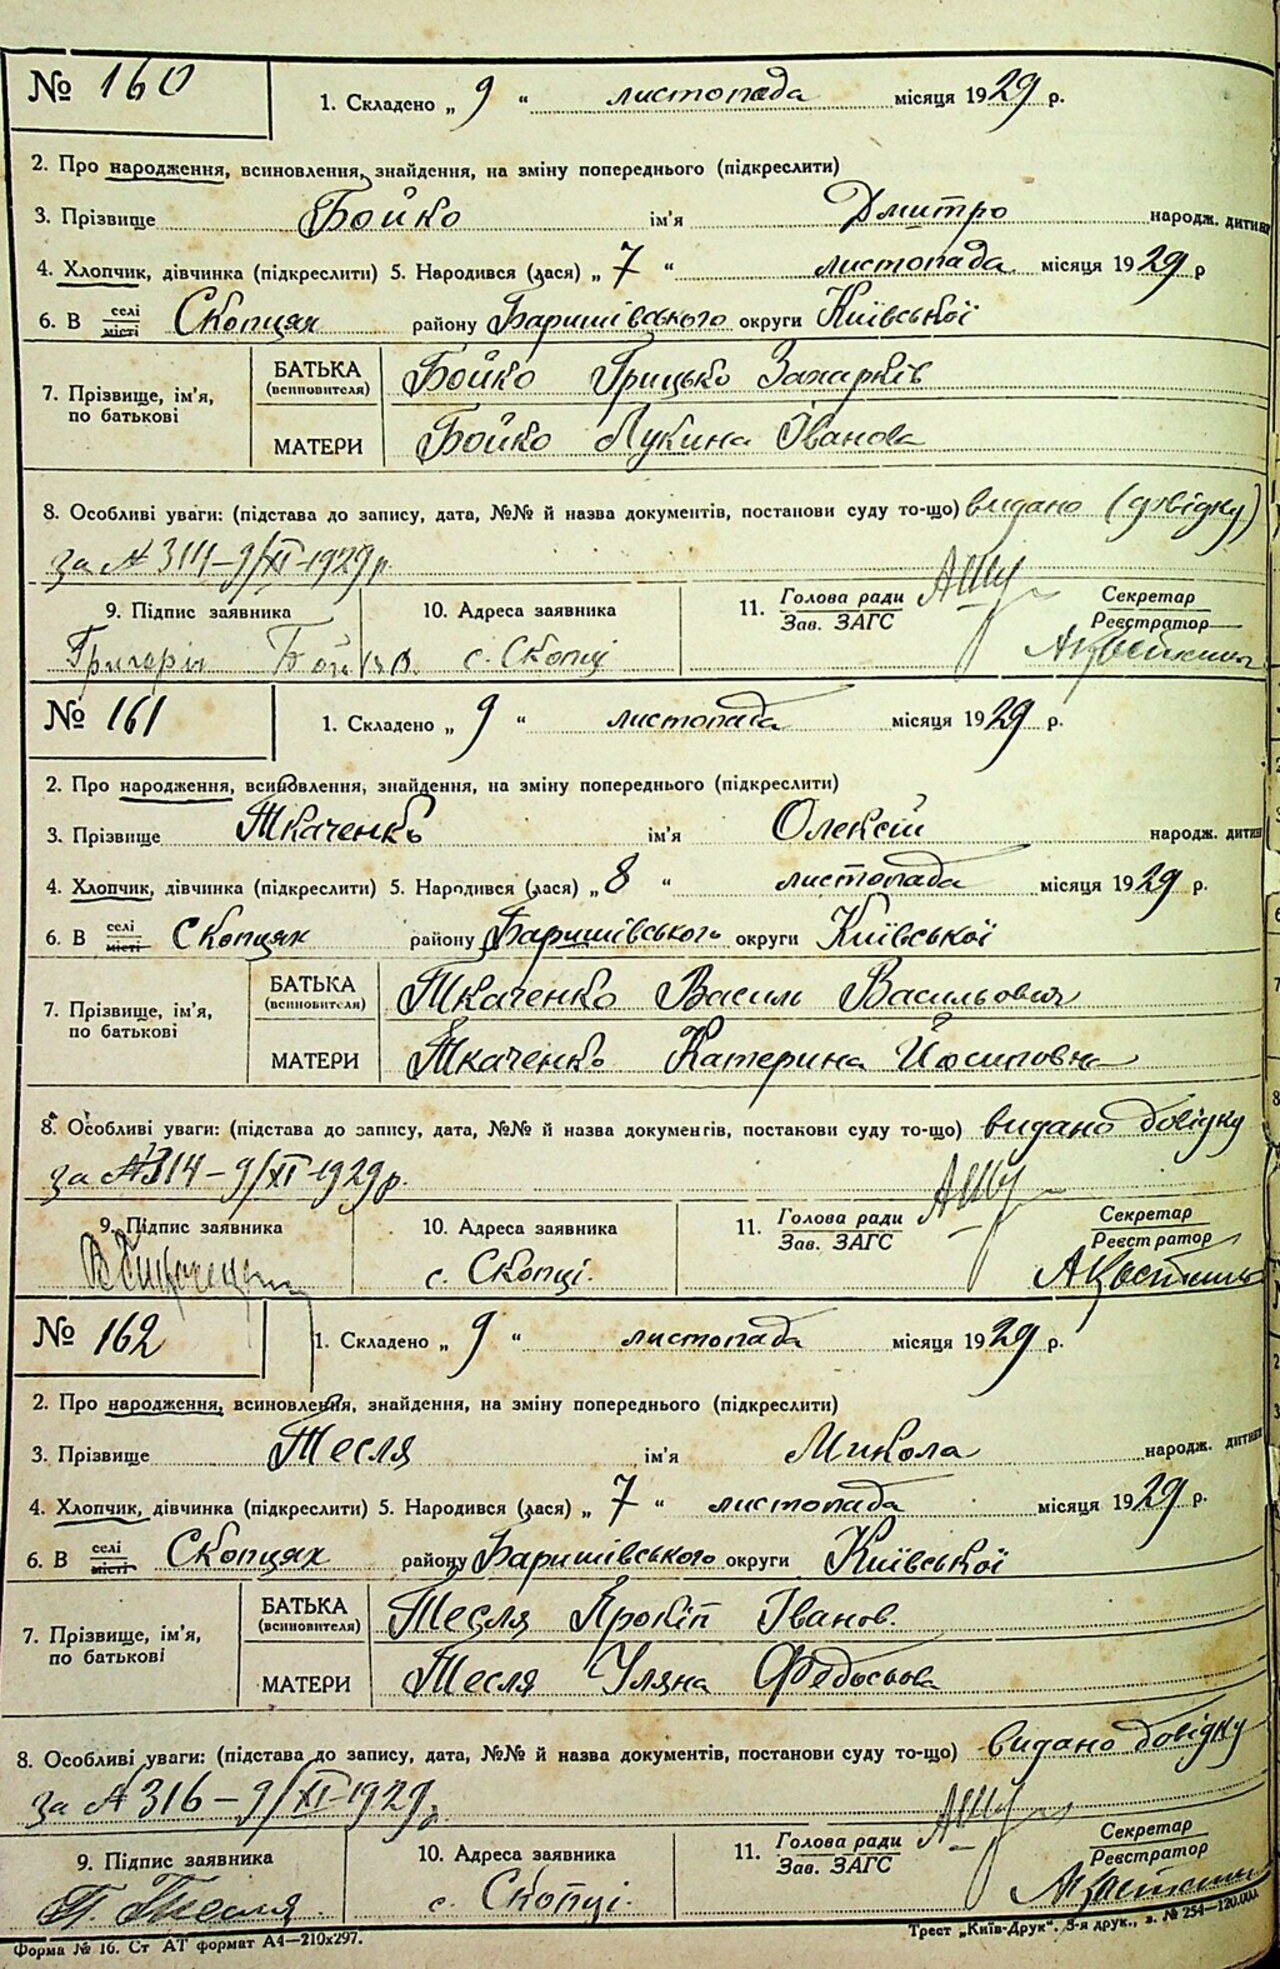 № 160
1. Складено „ 9 “ листопада місяця 1929 р.
2. Про народження, всиновлення, знайдення, на зміну попереднього (підкреслити)
3. Прізвище Бойко ім'я Дмитро народж. дитини
4. Хлопчик, дівчинка (підкреслити) 5. Народився (лася) „ 7 “ листопада місяця 1929 р
6. В селі місті Скопцях району Баришівського округи Київської
7. Прізвище, ім'я, по батькові
БАТЬКА (всиновителя) Бойко Грицько Захарків
МАТЕРИ Бойко Лукина Іванова
8. Особливі уваги: (підстава до запису, дата, №№ й назва документів, постанови суду то-що) видано (довідку)
за № 314 – 9/XI – 1929 р.
9. Підпис заявника 10. Адреса заявника 11. Голова ради Зав. ЗАГС Секретар Реєстратор
Григорій Бойко. с. Скопці
№ 161
1. Складено „ 9 “ листопада місяця 1929 р.
2. Про народження, всиновлення, знайдення, на зміну попереднього (підкреслити)
3. Прізвище Ткаченко ім'я Олексій народж. дитини
4. Хлопчик, дівчинка (підкреслити) 5. Народився (лася) „ 8 “ листопада місяця 1929 р.
6. В селі місті Скопцях району Баришівського округи Київської
7. Прізвище, ім'я, по батькові
БАТЬКА (всиновителя) Ткаченко Василь Васильович
МАТЕРИ Ткаченко Катерина Йосиповна
8. Особливі уваги: (підстава до запису, дата, №№ й назва документів, постанови суду то-що) видано довідку
за № 314 – 9/XI – 1929 р.
9. Підпис заявника 10. Адреса заявника 11. Голова ради Зав. ЗАГС Секретар Реєстратор
с. Скопці.
№ 162
1. Складено „ 9 “ листопада місяця 1929 р.
2. Про народження, всиновлення, знайдення, на зміну попереднього (підкреслити)
3. Прізвище Тесля ім'я Микола народж. дитини
4. Хлопчик, дівчинка (підкреслити) 5. Народився (лася) „ 7 “ листопада місяця 1929 р.
6. В селі місті Скопцях району Баришівського округи Київської
7. Прізвище, ім'я, по батькові
БАТЬКА (всиновителя) Тесля Прокіп Іванов.
МАТЕРИ Тесля Уляна Федосьова
8. Особливі уваги: (підстава до запису, дата, №№ й назва документів, постанови суду то-що) видано довідку
за № 316 – 9/XI – 1929 р.
9. Підпис заявника 10. Адреса заявника 11. Голова ради Зав. ЗАГС Секретар Реєстратор
П. Тесля. с. Скопці.
Форма № 16. Ст АТ формат А4—210х297.
Трест „Київ-Друк“. 3-я друк., з. № 254—120.000